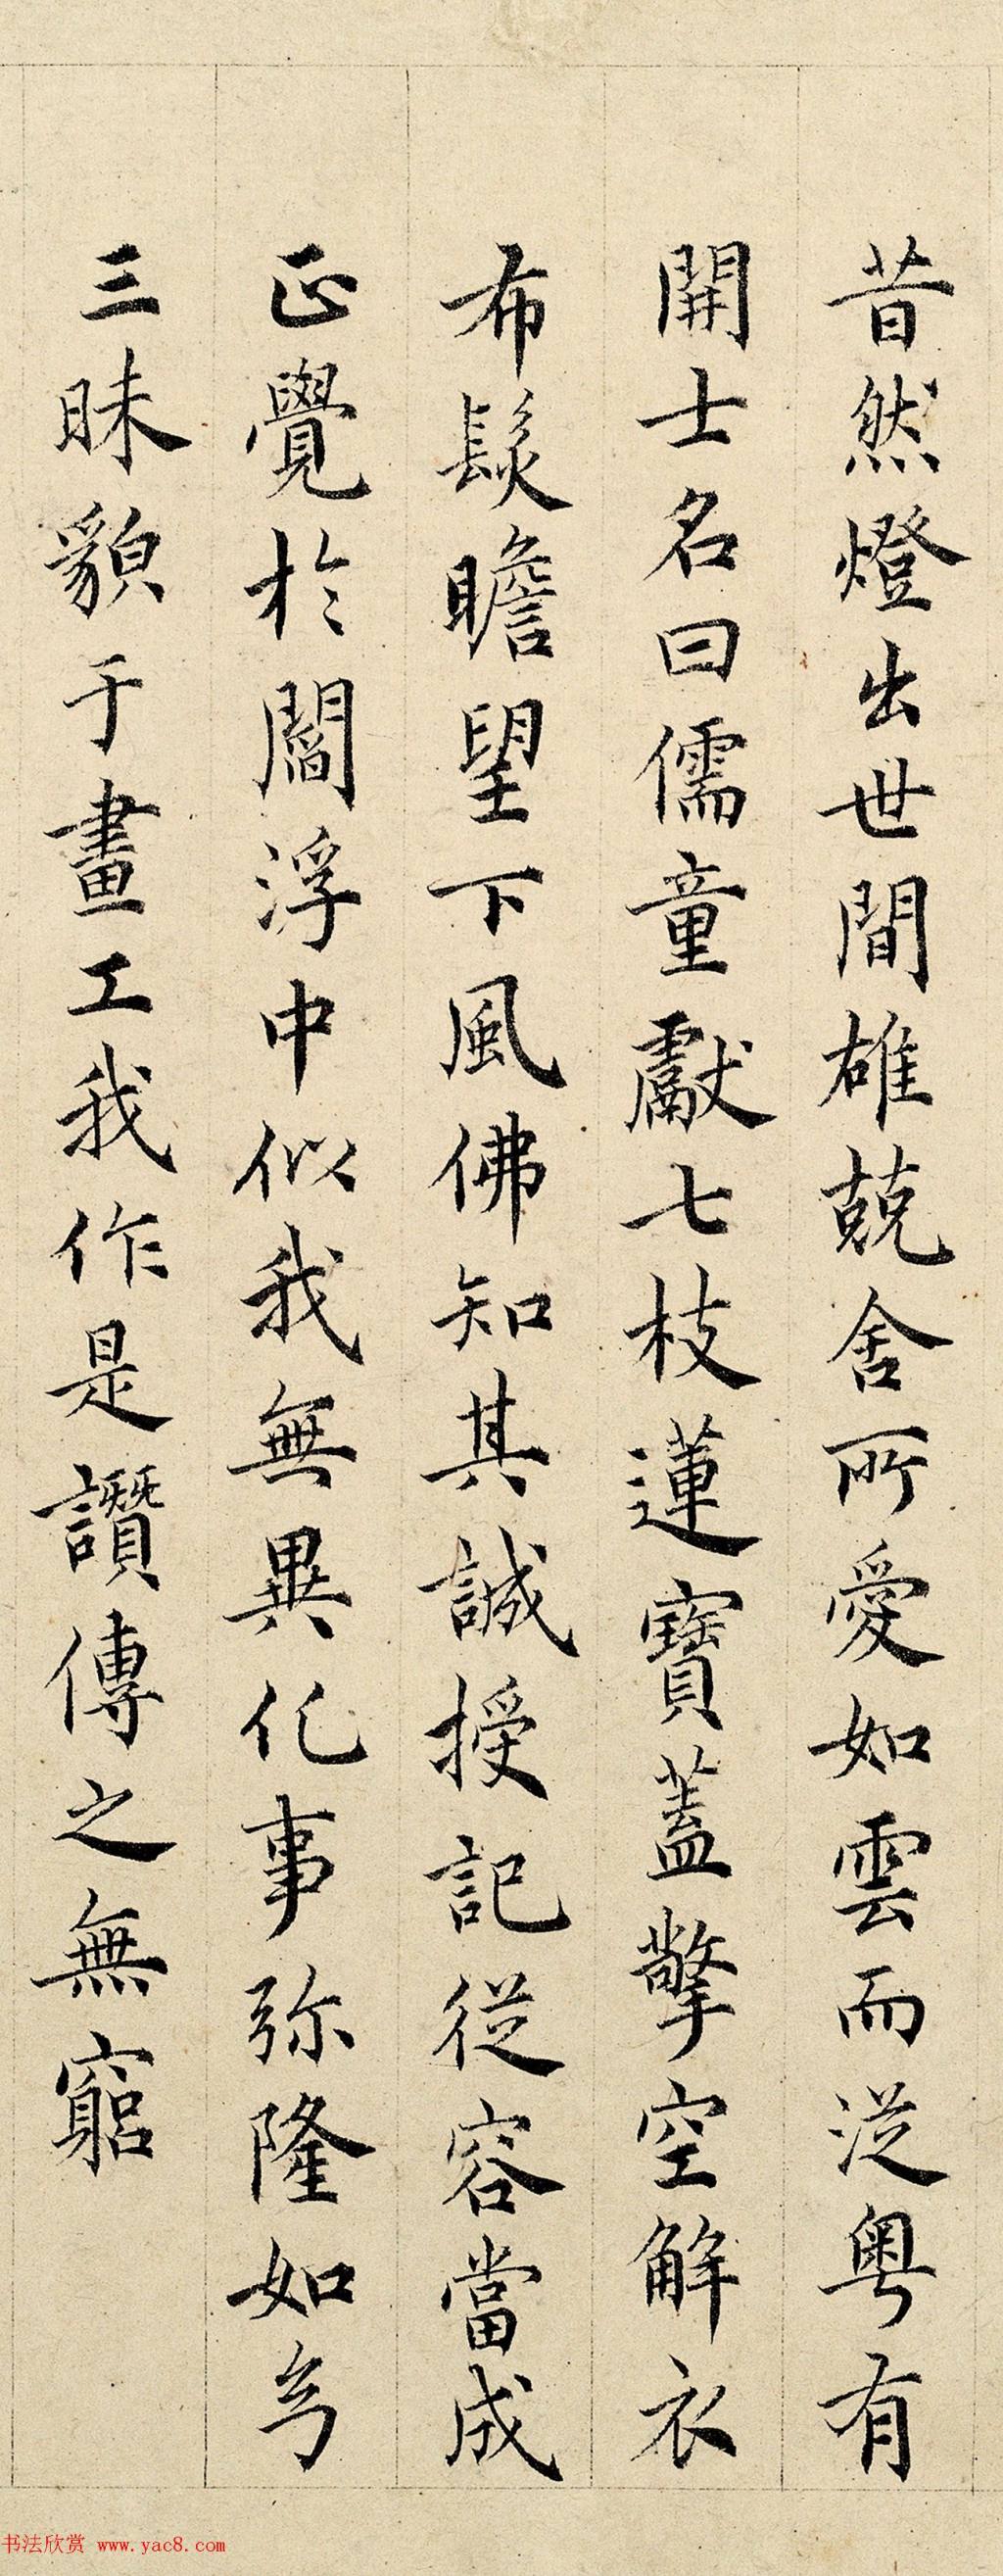 昔然燈出世間雄兢舍所愛如雲而泛粤有
開士名曰儒童獻七枝蓮寶蓋擎空解衣
布髮瞻望下風佛知其誠授記從容當成
正覺於閻浮中似我無異化事弥隆如兮
三昧貌于畫工我作是讚傳之無窮
书法欣赏 www.yac8.com